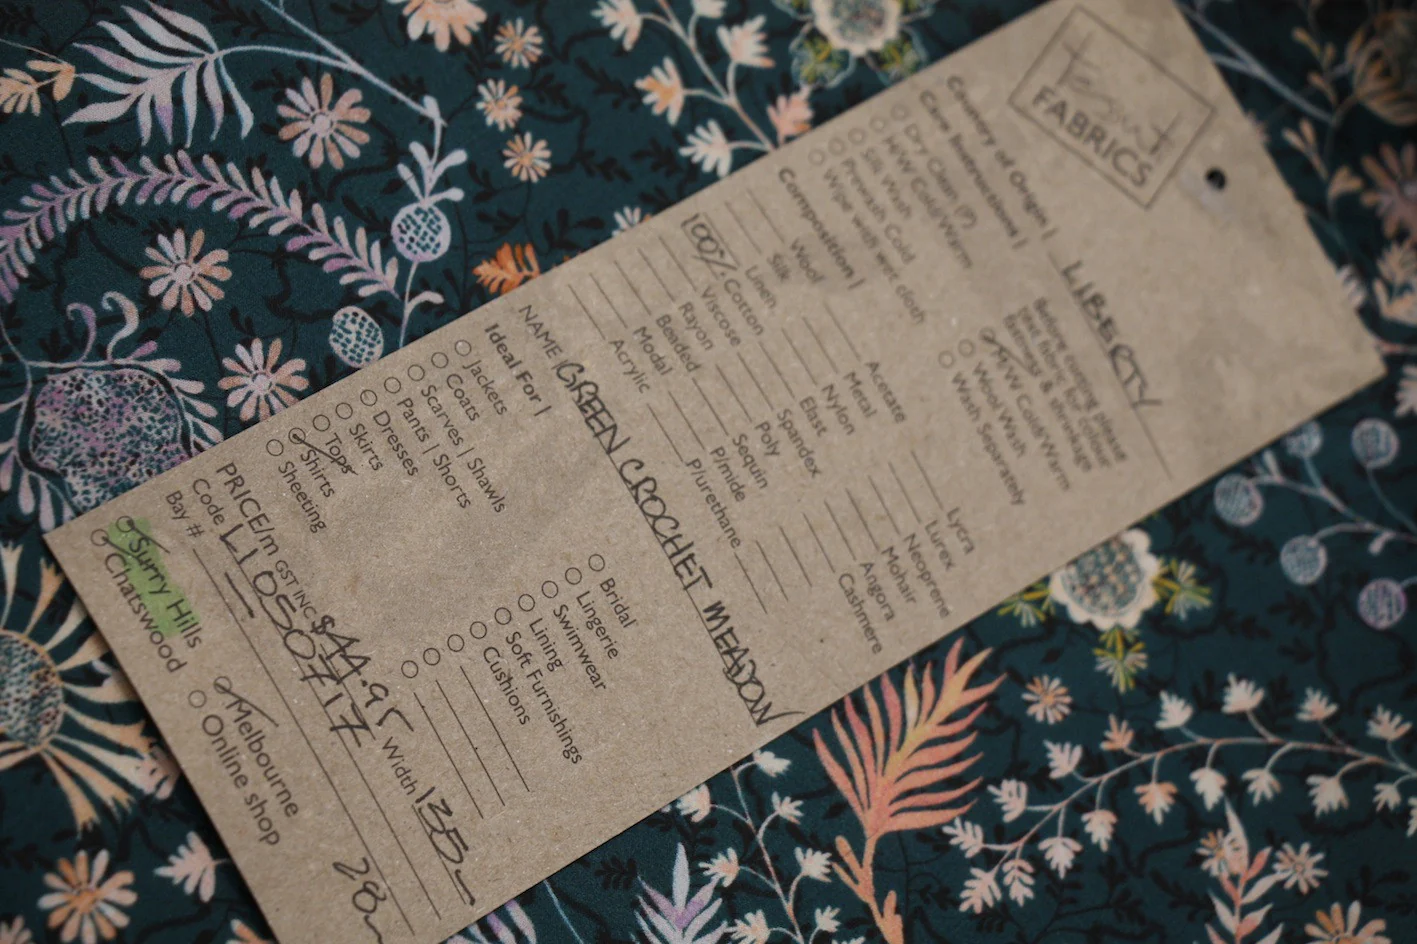 Tessuti
FABRICS
Country of Origin | LIBERTY
Care Instructions |
Before cutting please
test fabric for colour
fastness & shrinkage
Dry Clean (P)
M/W Cold/Warm
H/W Cold/Warm
Wool Wash
Silk Wash
Wash Separately
Prewash Cold
Wipe with wet cloth
Composition |
Wool
Acetate
Lycra
Silk
Metal
Lurex
Linen
Nylon
Neoprene
100% Cotton
Elast
Mohair
Viscose
Spandex
Angora
Rayon
Poly
Cashmere
Beaded
Sequin
Modal
P/mide
Acrylic
P/urethane
NAME | GREEN CROCHET MEADOW
Ideal For |
Jackets
Bridal
Coats
Lingerie
Scarves | Shawls
Swimwear
Pants | Shorts
Lining
Dresses
Soft Furnishings
Skirts
Cushions
Tops
Shirts
Sheeting
PRICE/m GST INC $44.95 Width 135
Code LI050717
Bay #
Surry Hills
Melbourne
Chatswood
Online shop